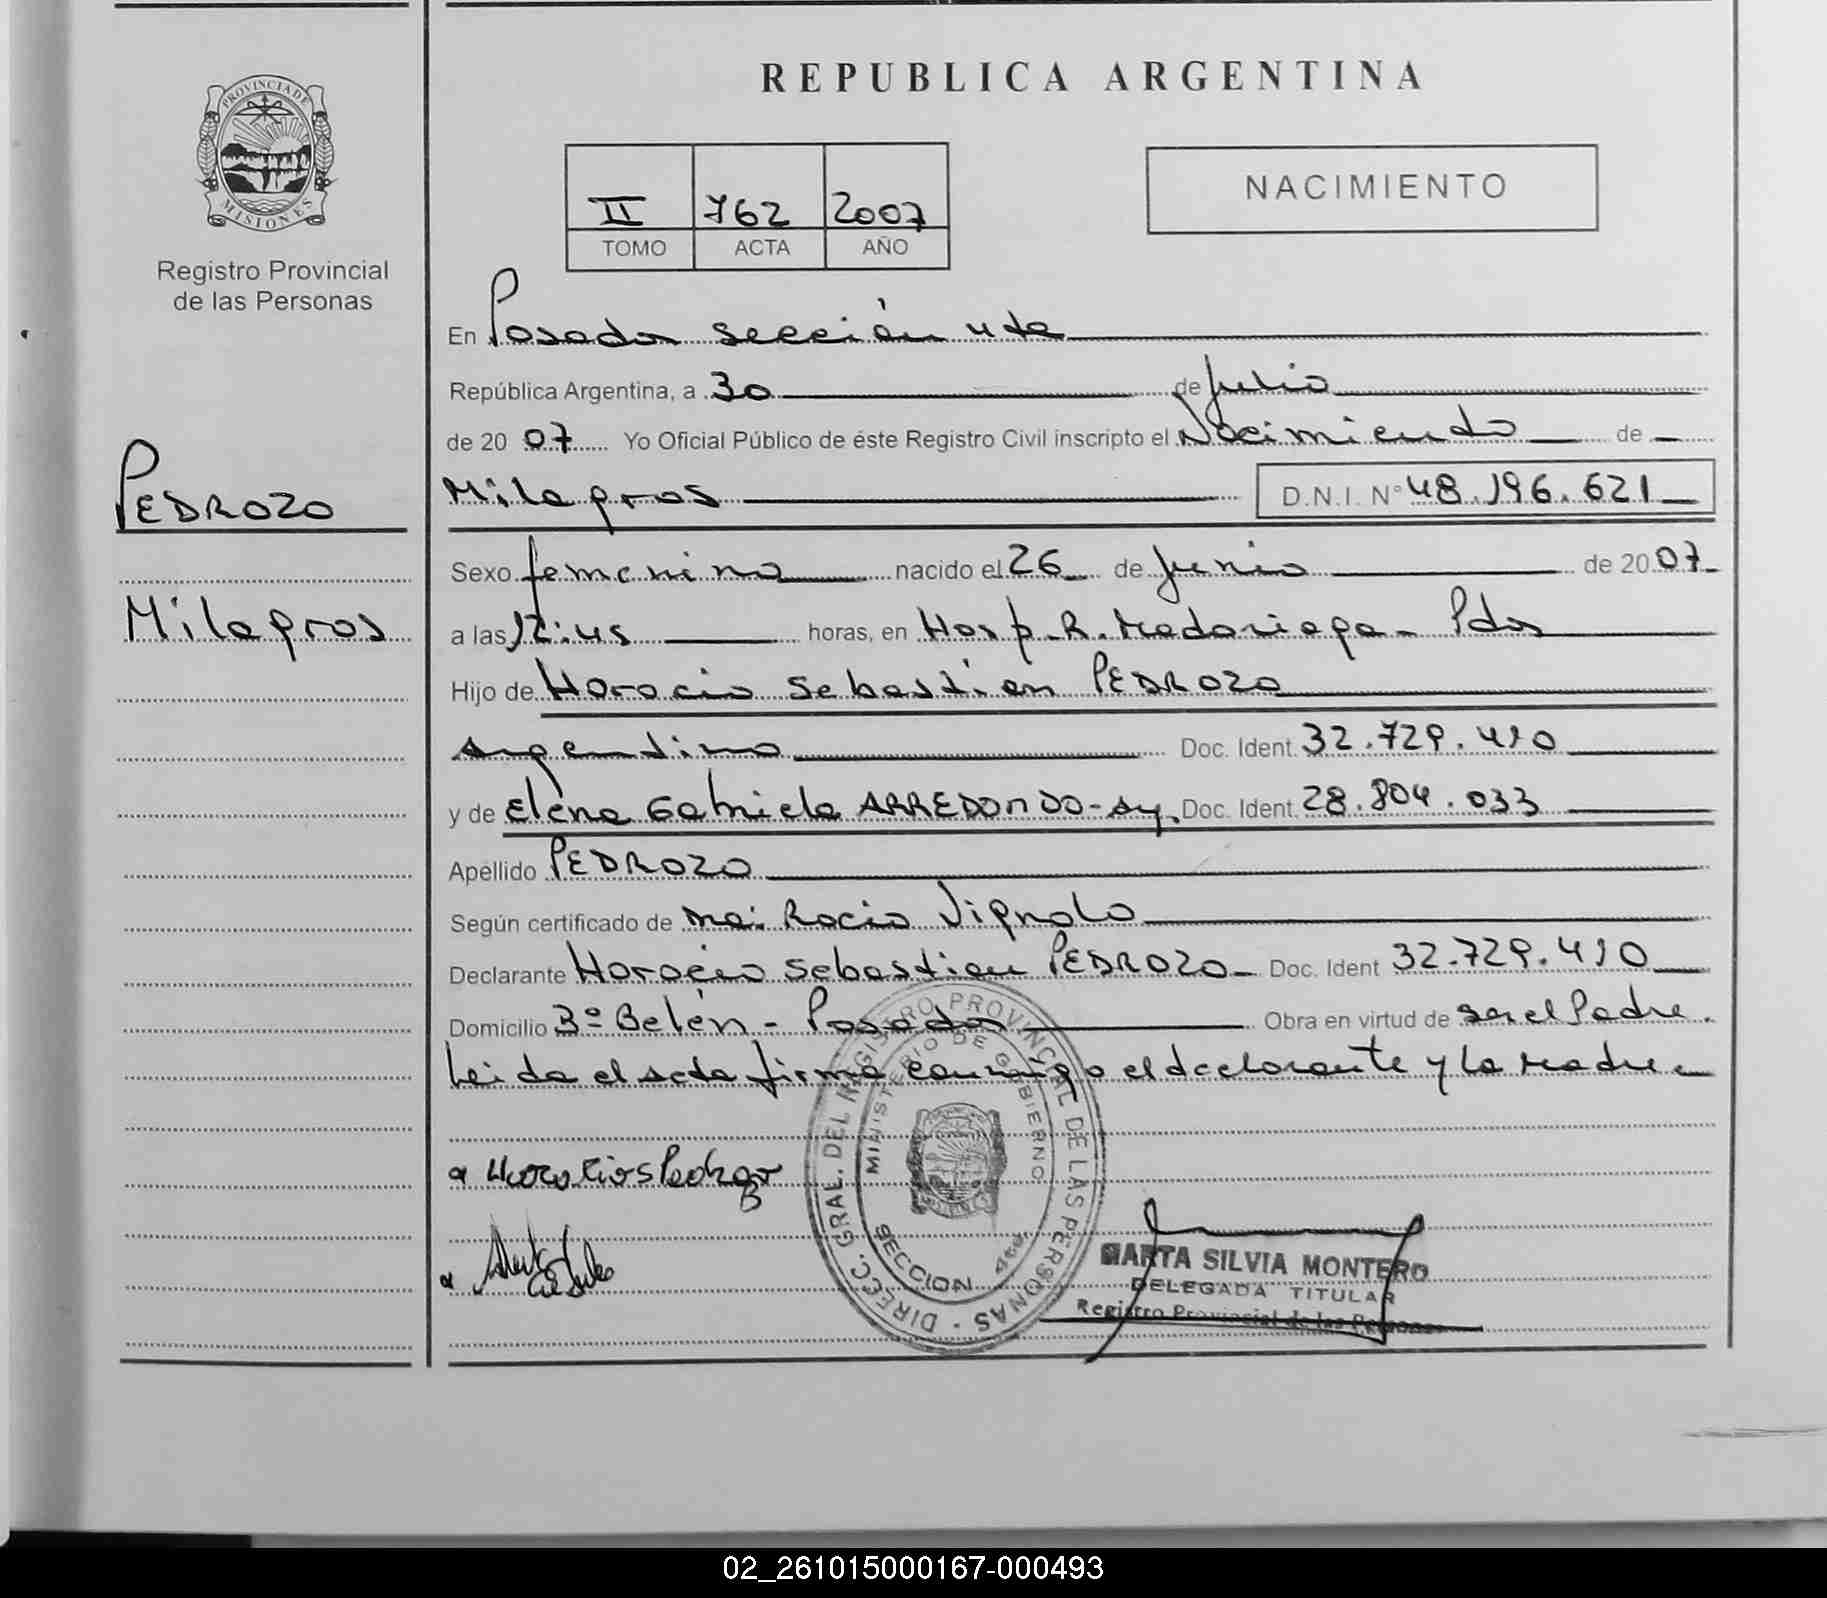 REPUBLICA ARGENTINA
PROVINCIA DE
MISIONES
Registro Provincial
de las Personas
II 762 2007
TOMO ACTA AÑO
NACIMIENTO
PEDROZO
Milagros
En Posadas sección 4ta
República Argentina, a 30 de julio
de 2007 Yo Oficial Público de éste Registro Civil inscripto el Nacimiento de
Milagros D.N.I. N° 48.196.621
Sexo femenino nacido el 26 de junio de 2007
a las 12:45 horas, en Hosp. R. Madariaga - Pdas
Hijo de Horacio Sebastian PEDROZO
argentino Doc. Ident. 32.729.410
y de Elena Gabriela ARREDONDO - Ay. Doc. Ident. 28.804.033
Apellido PEDROZO
Según certificado de Rocio Vignolo
Declarante Horacio Sebastian PEDROZO Doc. Ident 32.729.410
Domicilio Bº Belén - Posadas Obra en virtud de ser el Padre.
Leida el acta firma conmigo el declarante y la madre
DIRECC. GRAL. DEL REGISTRO PROVINCIAL DE LAS PERSONAS -
MINISTERIO DE GOBIERNO
SECCION 4ta.
MARTA SILVIA MONTERO
DELEGADA TITULAR
Registro Provincial de las Personas
02_261015000167-000493